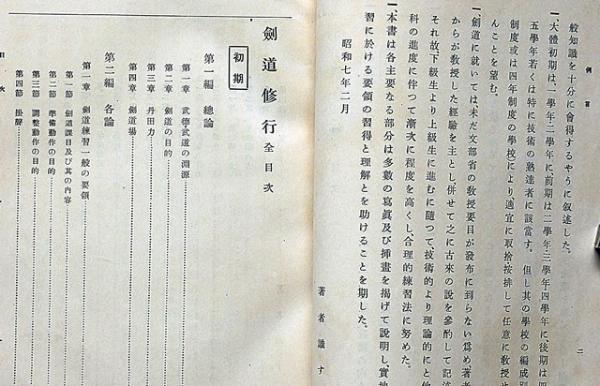 例言
二
般知識を十分に會得するやうに叙述した。
一、大體初期は、一學年二學年に、前期は二學年・三學年・四學年に、後期は四
五學年若くは特に技術の熟達者に該當す。但し其の學校の編成
制度或は四年制度の學校)により適宜に取捨・按排して任意に教授せ
んことを望む。
一、劍道に就いては、未だ文部省の教授要目が發布に到らない爲め、著者
からが教授した經驗を主とし、併せて之に古來の說を參酌して記述
それ故、下級生より上級生に進むに隨つて、技術的より理論的にと
科の進度に伴つて漸次に程度を高くし、合理的練習法に努めた。
一、本書は各主要なる部分は多數の寫眞及び挿畫を揭げて說明し、實
習に於ける要領の習得と理解とを助けることを期した。
昭和七年二月
著者識す
劍道修行 全 目次
初期
第一編 總論
第一章 武德武道の淵源
第二章 劍道の目的
第三章 丹田力
第四章 劍道場
第二編 各論
第一章 劍道練習一般の要領
第一節 劍道課目及び其の內容
第二節 準備動作の目的
第三節 調整動作の目的
第四節 掛聲
目次